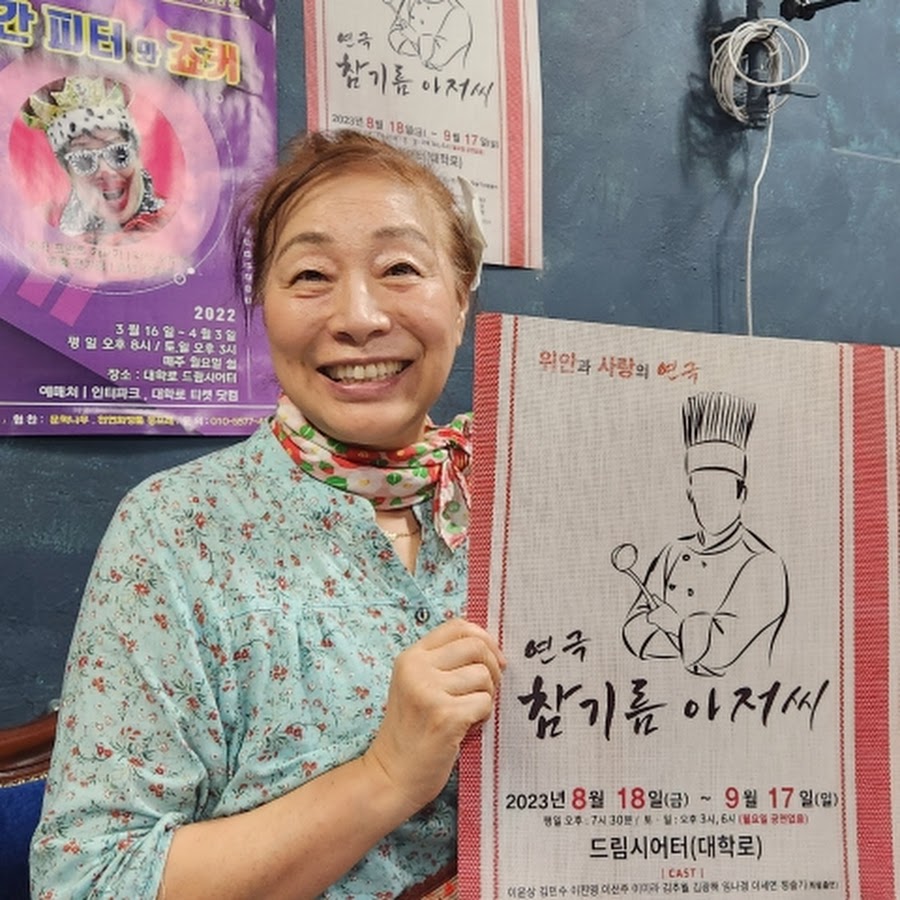 간 피터 와 죠커
2022
3월 16일 ~ 4월 3일
평일 오후 8시 / 토,일 오후 3시
매주 월요일 쉼
장소 : 대학로 드림시어터
예매처 | 인터파크 , 대학로 티켓 닷컴
연극
참기름 아저씨
2023년 8월 18일(금) ~ 9월 17일(일)
위인과 사랑의 연극
연극
참기름 아저씨
2023년 8월 18일(금) ~ 9월 17일(일)
평일 오후 : 7시 30분 / 토 · 일 : 오후 3시, 6시 (월요일 공연없음)
드림시어터(대학로)
| CAST |
이윤상 김민수 이진영 이선주 이미라 김추월